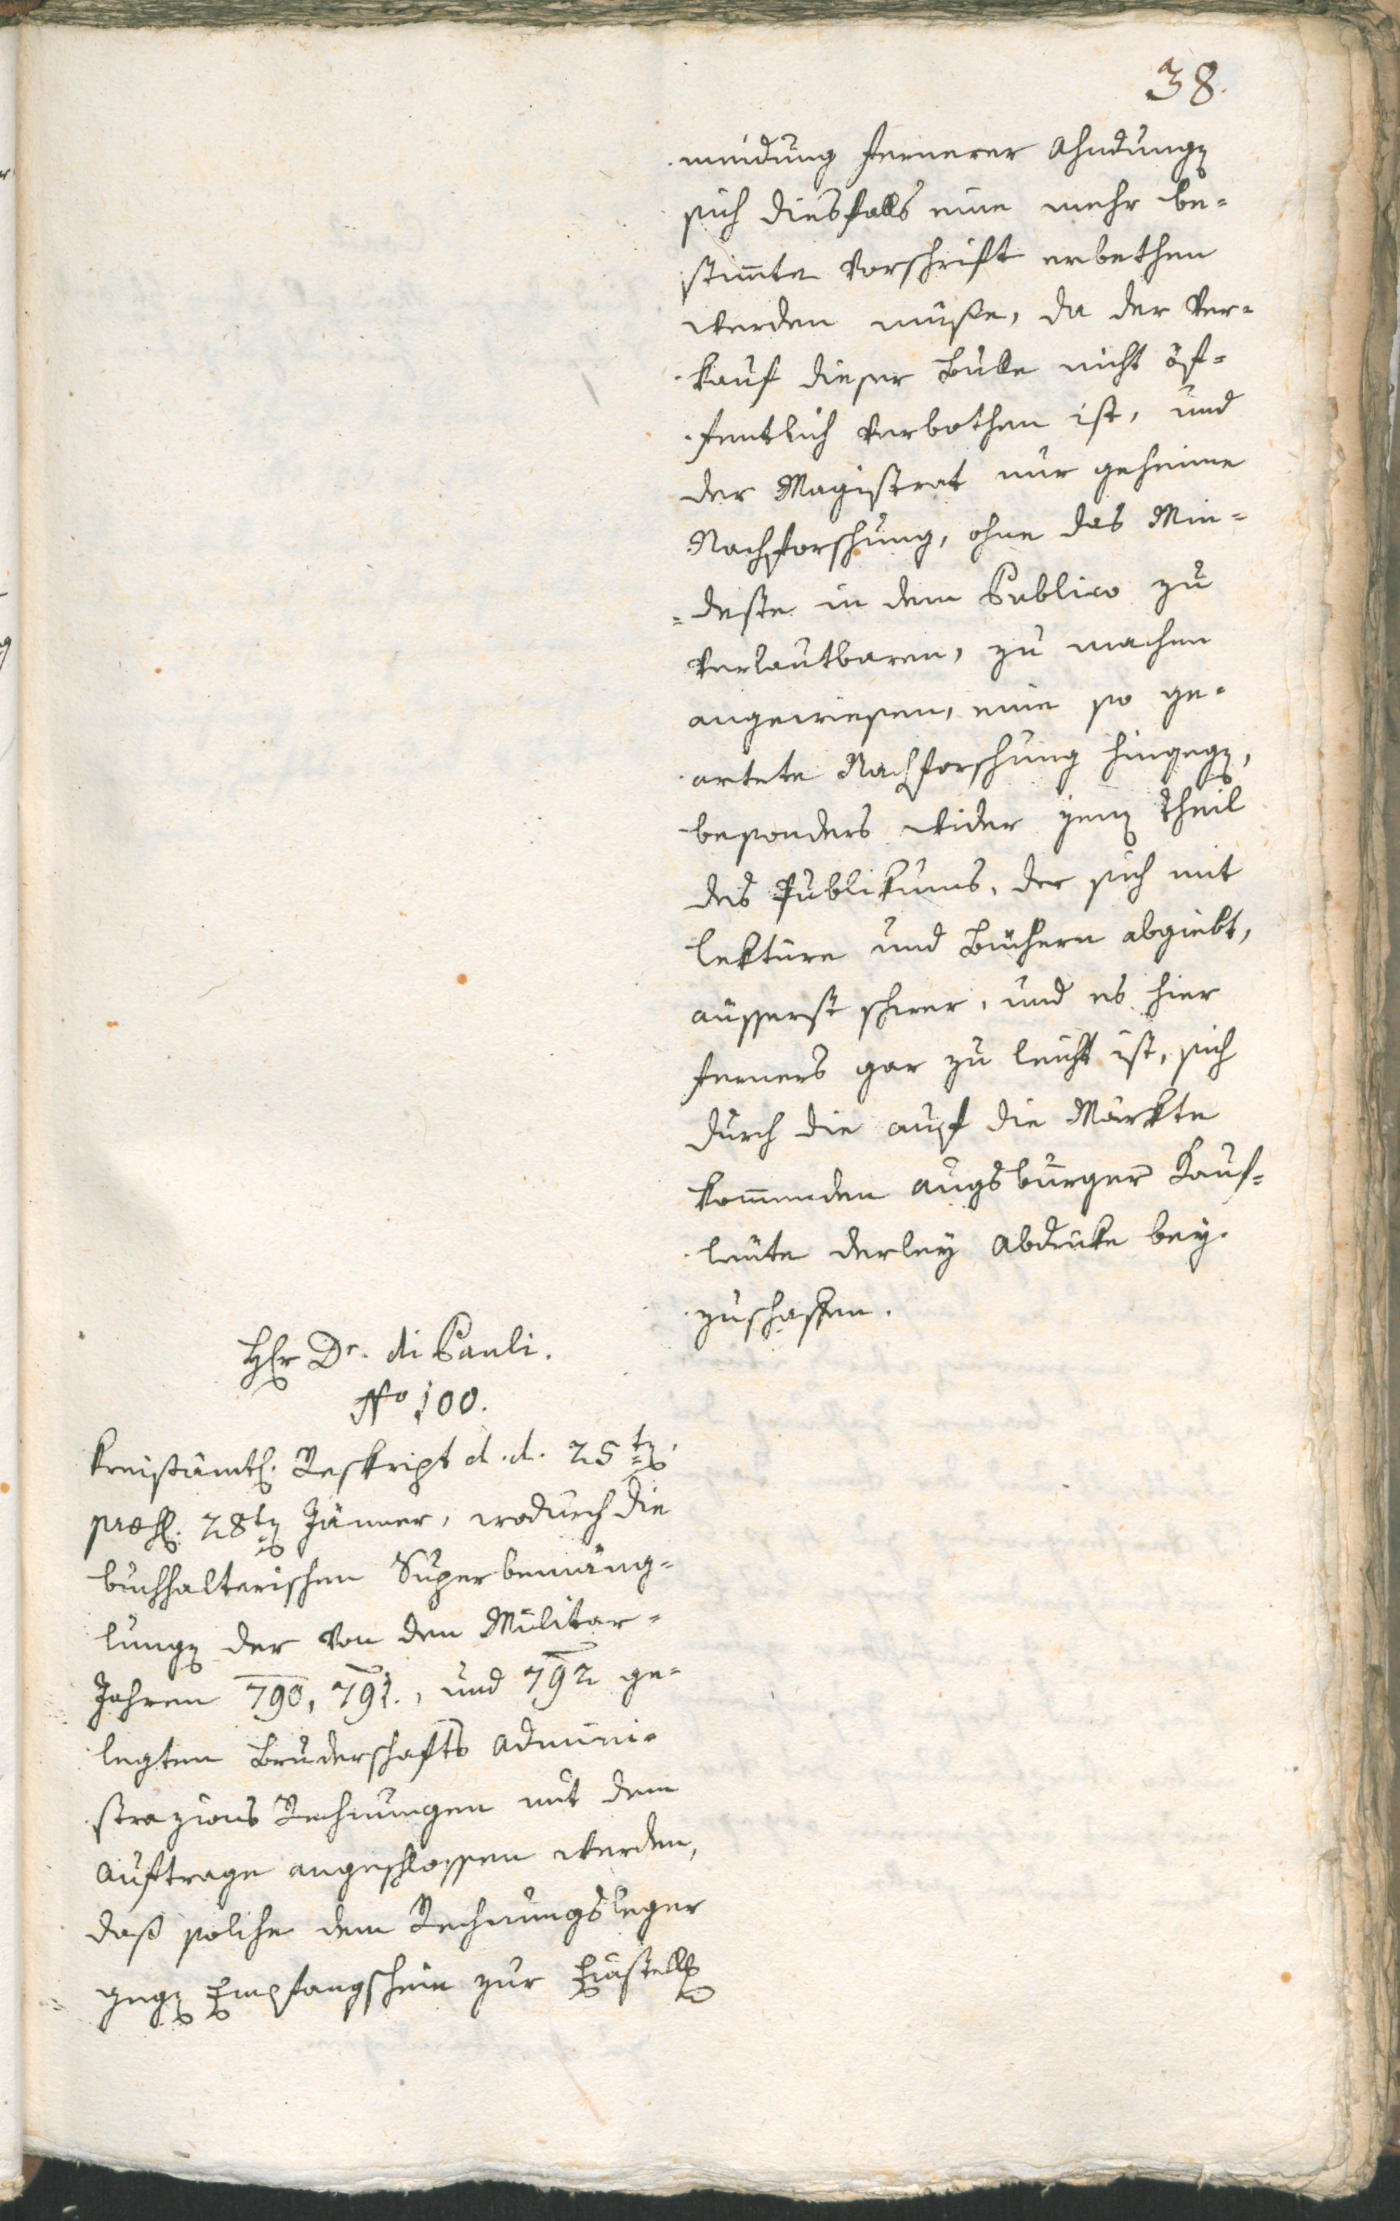 38.
meidung fernerer Ahndung
sich diesfalls eine mehr be-
stimte Vorschrift erbethen
werden müße, da der Ver-
kauf dieser Bulle nicht öf-
fentlich verbothen ist, und
der Magistrat nur geheime
Nachforschung, ohne das Min-
deste in dem Publico zu
verlautbaren, zu machen
angewiesen, eine so ge-
artete Nachforschung hingegen,
besonders wider jenen Theil
des Publikums, der sich mit
lektüre und Büchern abgiebt,
äusserst schwer, und es hier
ferners gar zu leicht ist, sich
durch die auf die Märkte
kommenden augsburger Kauf-
leute derley Abdruke bey-
zuschaffen.
Hr Dr. di Pauli.
No 100.
Kreisämtl. Reskript d. d. 25ten
praes. 28ten Jänner, wodurch die
buchhalterischen Superbemäng-
lungen der von den Militar-
Jahren 790, 791., und 792 ge-
legten Bruderschafts Admini-
strazions Rechnungen mit dem
Auftrage angeschlossen werden,
daß solche dem Rechnungsleger
gegen Empfangschein zur